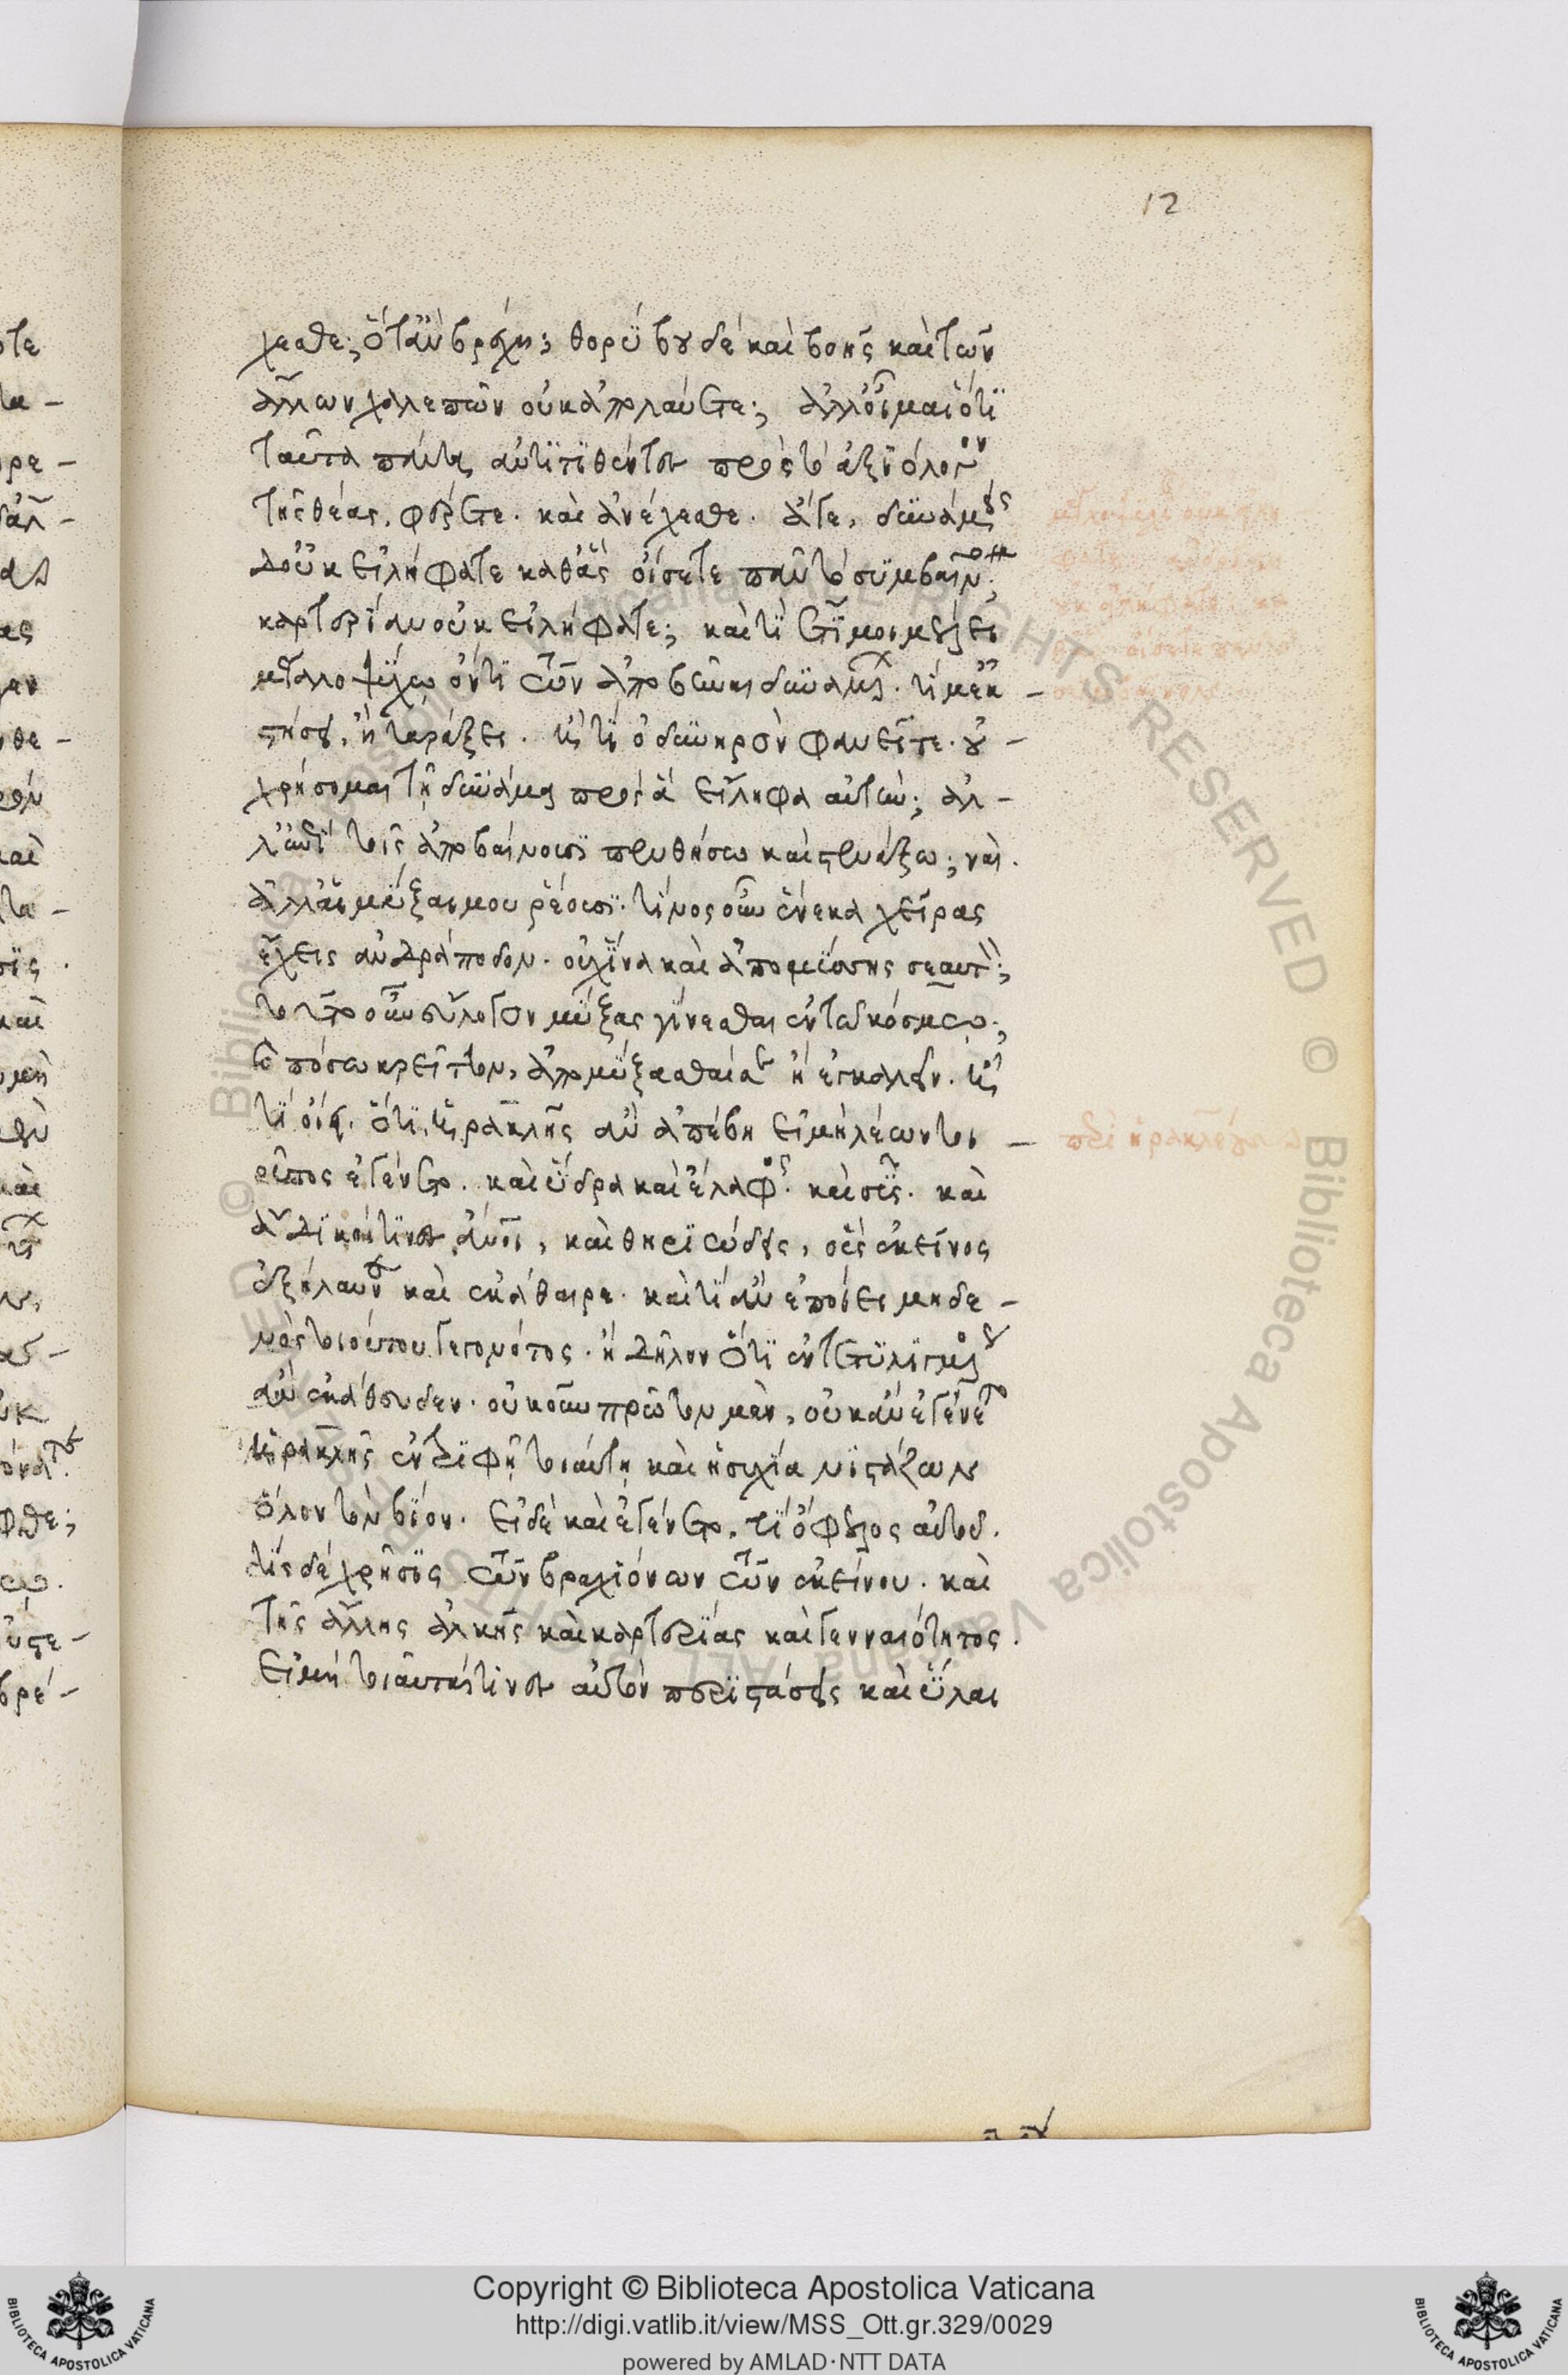 χεσθε; ὅταν βρέχῃ; θορύβου δὲ καὶ βοῆς καὶ τῶν
ἄλλων χαλεπῶν οὐκ ἀπολαύετε; ἀλλ' οἶμαι ὅτι
ταῦτα πάντα ἀντιτιθέντες πρὸς τὸ ἀξιόλογον
τῆς θέας, φέρετε. καὶ ἀνέχεσθε. ἄγε, δυνάμεις
δ' οὐκ εἰλήφατε καθ' ἃς οἴσετε πᾶν τὸ συμβαῖνον;
καρτερίαν οὐκ εἰλήφατε; καὶ τί ἔτι μοι μέλει
μεγαλοψύχῳ ὄντι τῶν ἀποβῆναι δυναμένων. τί μ' ἐκ-
στήσει, ἢ ταράξει. ἢ τί ὀδυνηρὸν φανεῖται. οὐ
χρήσομαι τῇ δυνάμει πρὸς ἃ εἴληφα αὐτήν; ἀλ-
λ' ἐπὶ τοῖς ἀποβαίνουσι πενθήσω καὶ στενάξω; ναί.
ἀλλ' αἱ μύξαι μου ῥέουσι. τίνος οὖν ἕνεκα χεῖρας
ἔχεις ἀνδράποδον. οὐχ ἵνα καὶ ἀπομύσσῃς σεαυτόν;
τοῦτο οὖν εὔλογον μύξας γίνεσθαι ἐν τῷ κόσμῳ;
καὶ πόσῳ κρεῖττον, ἀπομύξασθαί σε ἢ ἐγκαλεῖν. ἢ
τί οἴει. ὅτι, ἡρακλῆς ἂν ἀπέβη εἰ μὴ λέων τοι-
οῦτος ἐγένετο. καὶ ὕδρα καὶ ἔλαφος. καὶ σῦς. καὶ
ἄδικοί τινες ἄνθρωποι, καὶ θηριώδεις, οὓς ἐκεῖνος
ἐξήλαυνε καὶ ἐκάθαιρε. καὶ τί ἂν ἐποίει μηδε-
νὸς τοιούτου γεγονότος. ἢ δῆλον ὅτι ἐντετυλιγμένος
ἂν ἐκάθευδεν. οὐκοῦν πρῶτον μὲν, οὐκ ἂν ἐγένετο
ἡρακλῆς ἐν τρυφῇ τοιαύτῃ καὶ ἡσυχίᾳ νυστάζων
ὅλον τὸν βίον. εἰ δὲ καὶ ἐγένετο, τί ὄφελος αὐτοῦ.
τίς δὲ χρῆσις τῶν βραχιόνων τῶν ἐκείνου. καὶ
τῆς ἄλλης ἀλκῆς καὶ καρτερίας καὶ γενναιότητος.
εἰ μὴ τοιαῦταί τινες αὐτὸν περιστάσεις καὶ ὗλαι
12
Copyright © Biblioteca Apostolica Vaticana
http://digi.vatlib.it/view/MSS_Ott.gr.329/0029
powered by AMLAD·NTT DATA